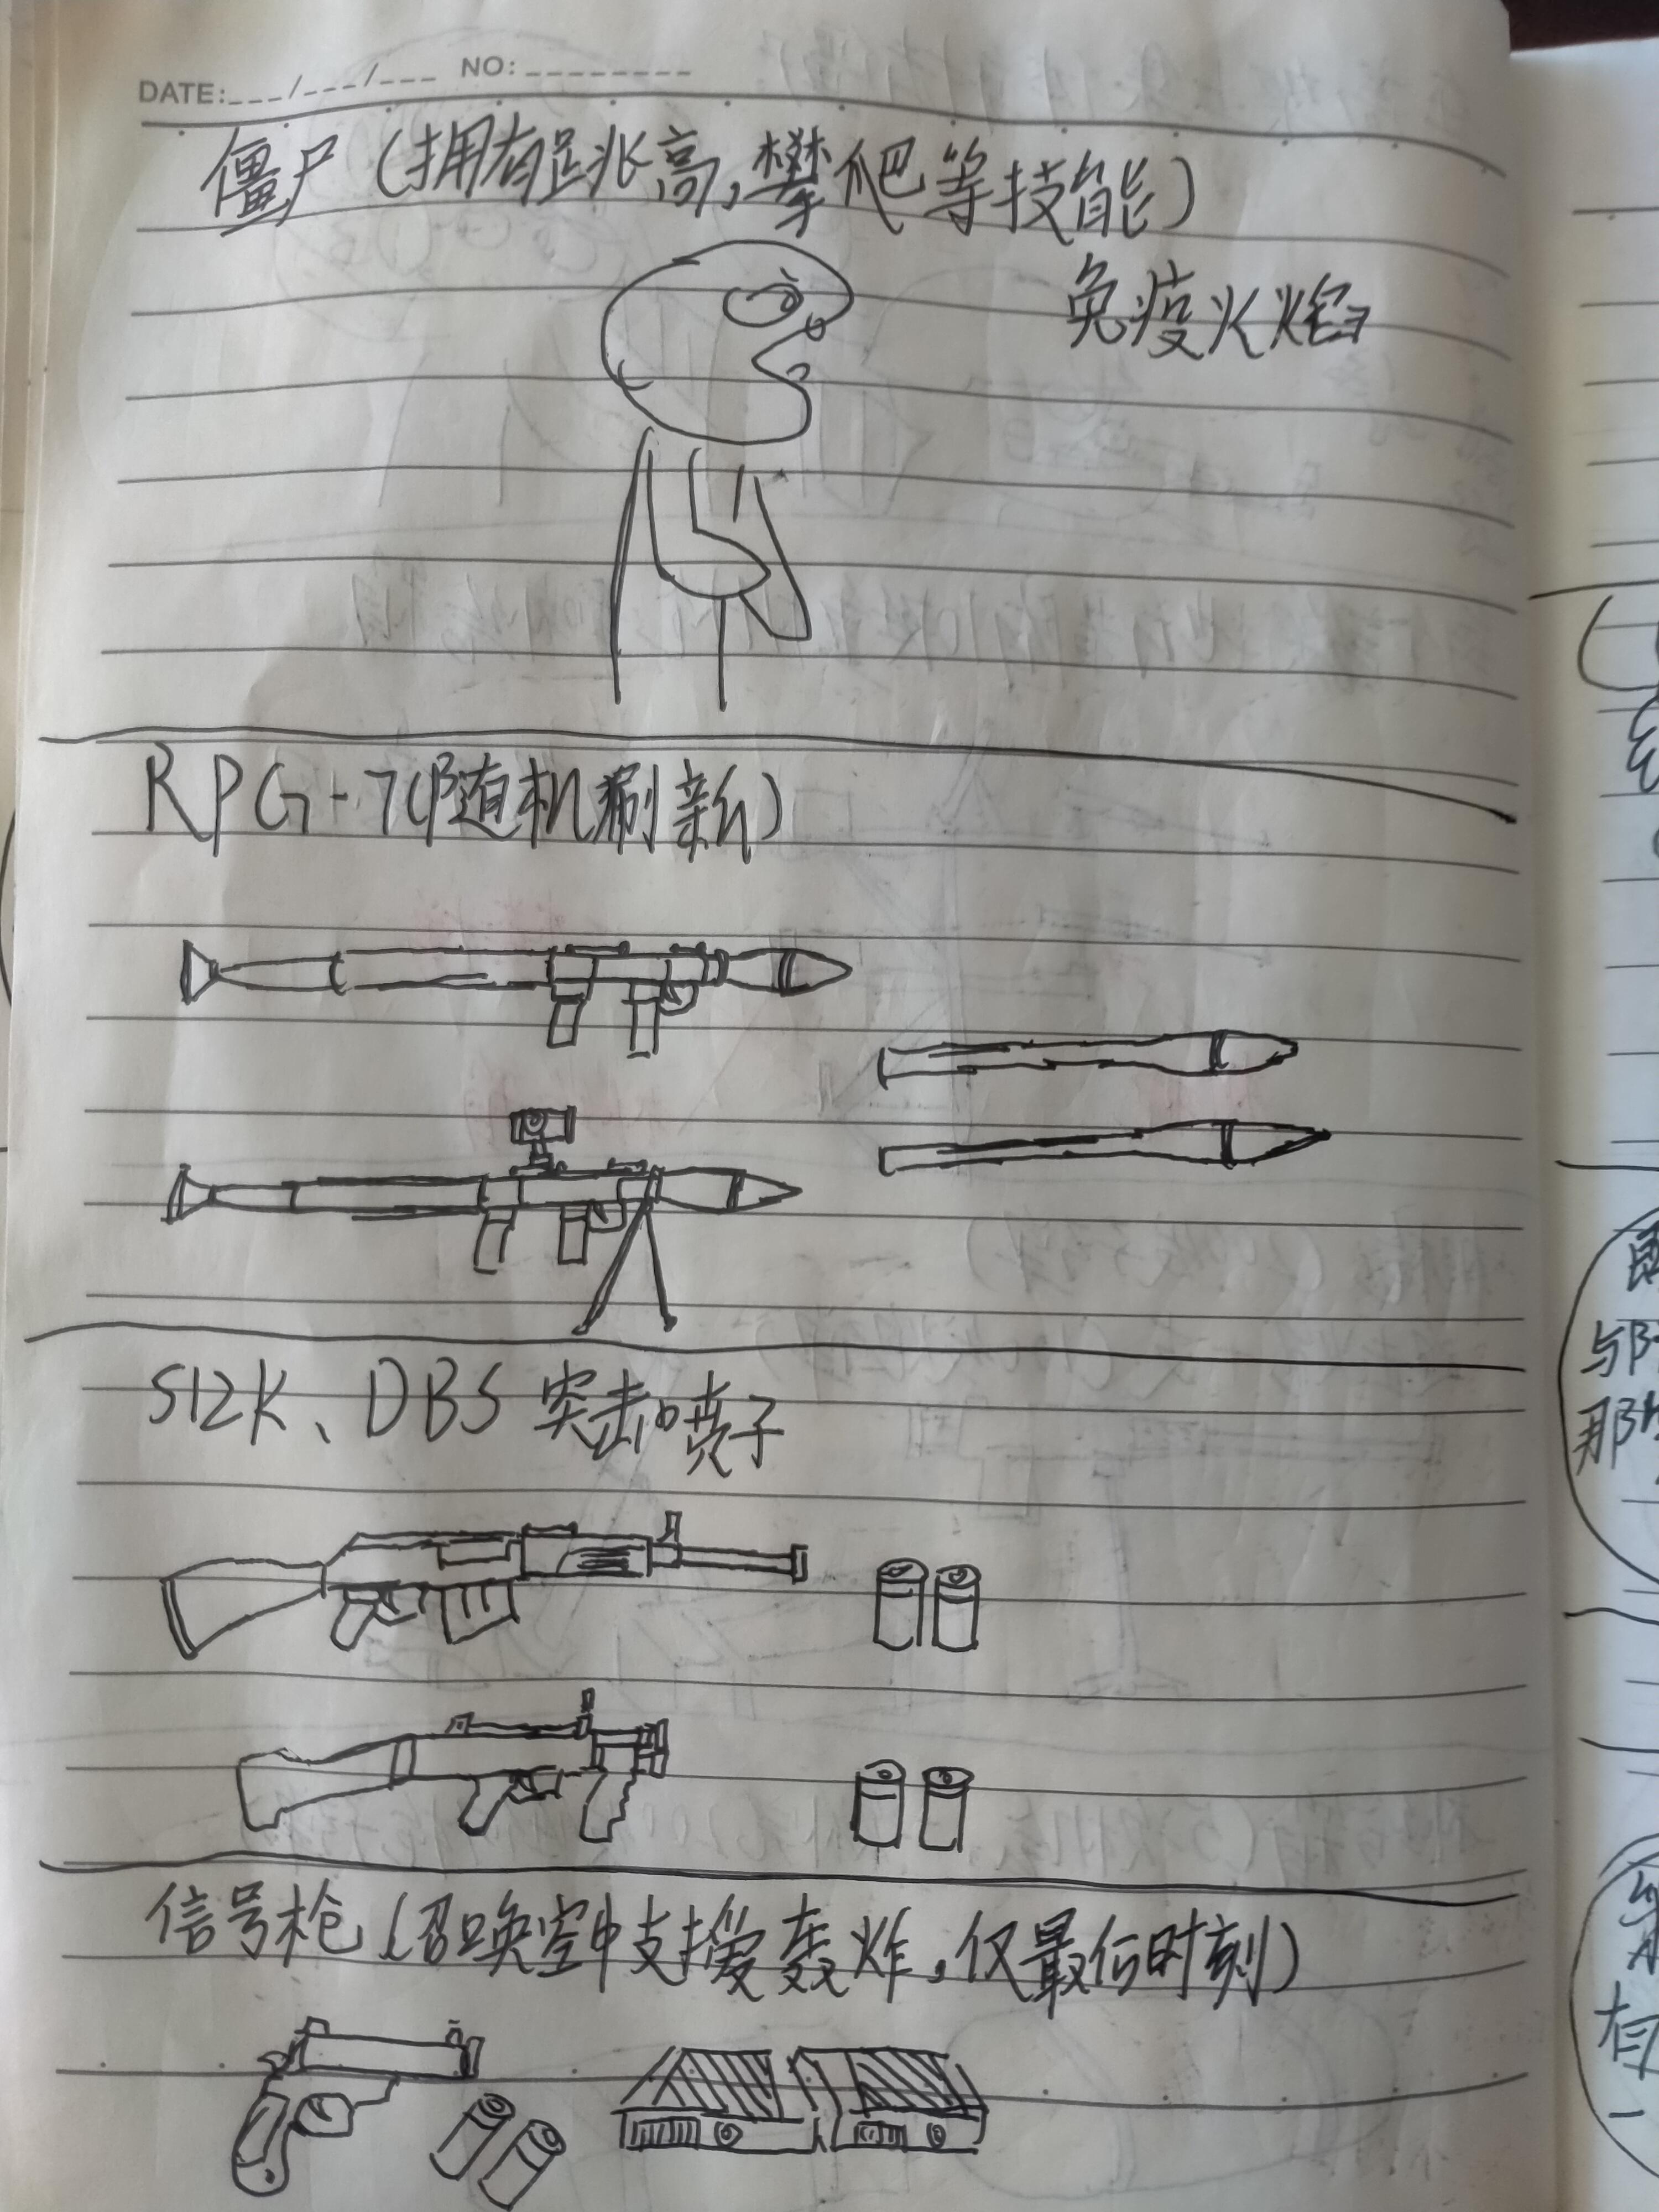 DATE:___/___/___ NO:_________
僵尸(拥有跳高,攀爬等技能)
免疫火焰
RPG-7(随机刷新)
S12K、DBS 突击喷子
信号枪(召唤空中支援轰炸,仅最后时刻)
与
那
有
一